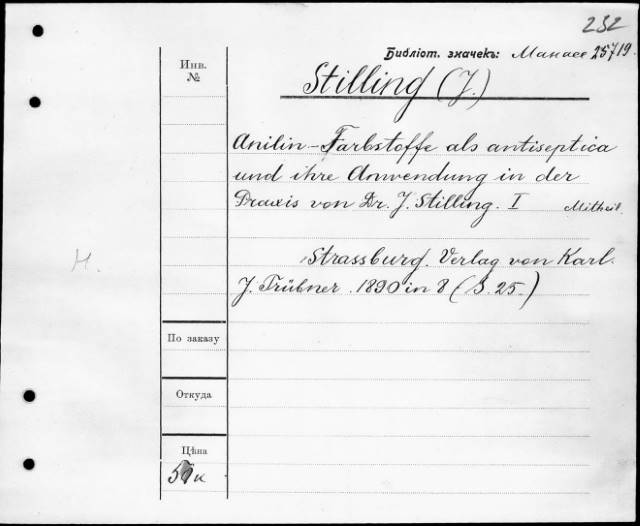 232
Библіот. значекъ: Манасе 25719.
Инв.
№
Stilling (J.)
Anilin-Farbstoffe als antiseptica
und ihre Anwendung in der
Praxis von Dr. J. Stilling. I Mittheil.
Strassburg. Verlag von Karl.
H.
J. Trübner. 1890 in 8 (S. 25.)
По заказу
Откуда
Цѣна
к